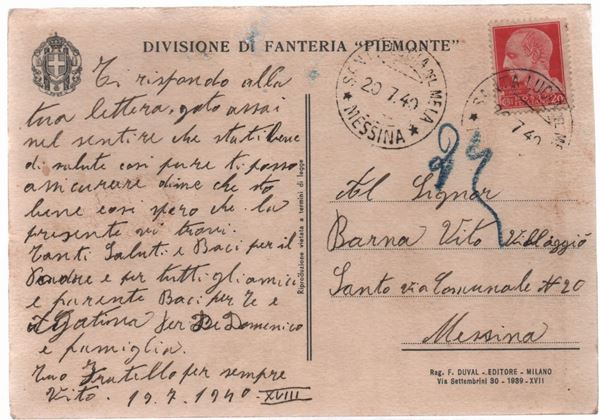 DIVISIONE DI FANTERIA "PIEMONTE"
Ti rispondo alla
tua lettera, godo assai
nel sentire che stati bene
di salute cosi pure ti posso
assicurare di me che sto
bene cosi spero che la
presente vi trovi.
Tanti Saluti e Baci per il
Padre e per tutti gli amice
e parente Baci per Te e
Agatina Ser Di Domenico
e famiglia.
Tuo Fratello per sempre
Vito. 19.7.1940 XVIII
Riproduzione vietata a termini di legge
SANTA LUCIA DEL MELA
20 7.40
★ MESSINA ★
SANTA LUCIA DEL ME
7 40
20
24
Al Signor
Barna Vito Villaggio
Santo via Comunale N 20
Messina
Rag. F. DUVAL - EDITORE - MILANO
Via Settembrini 30 - 1939 - XVII